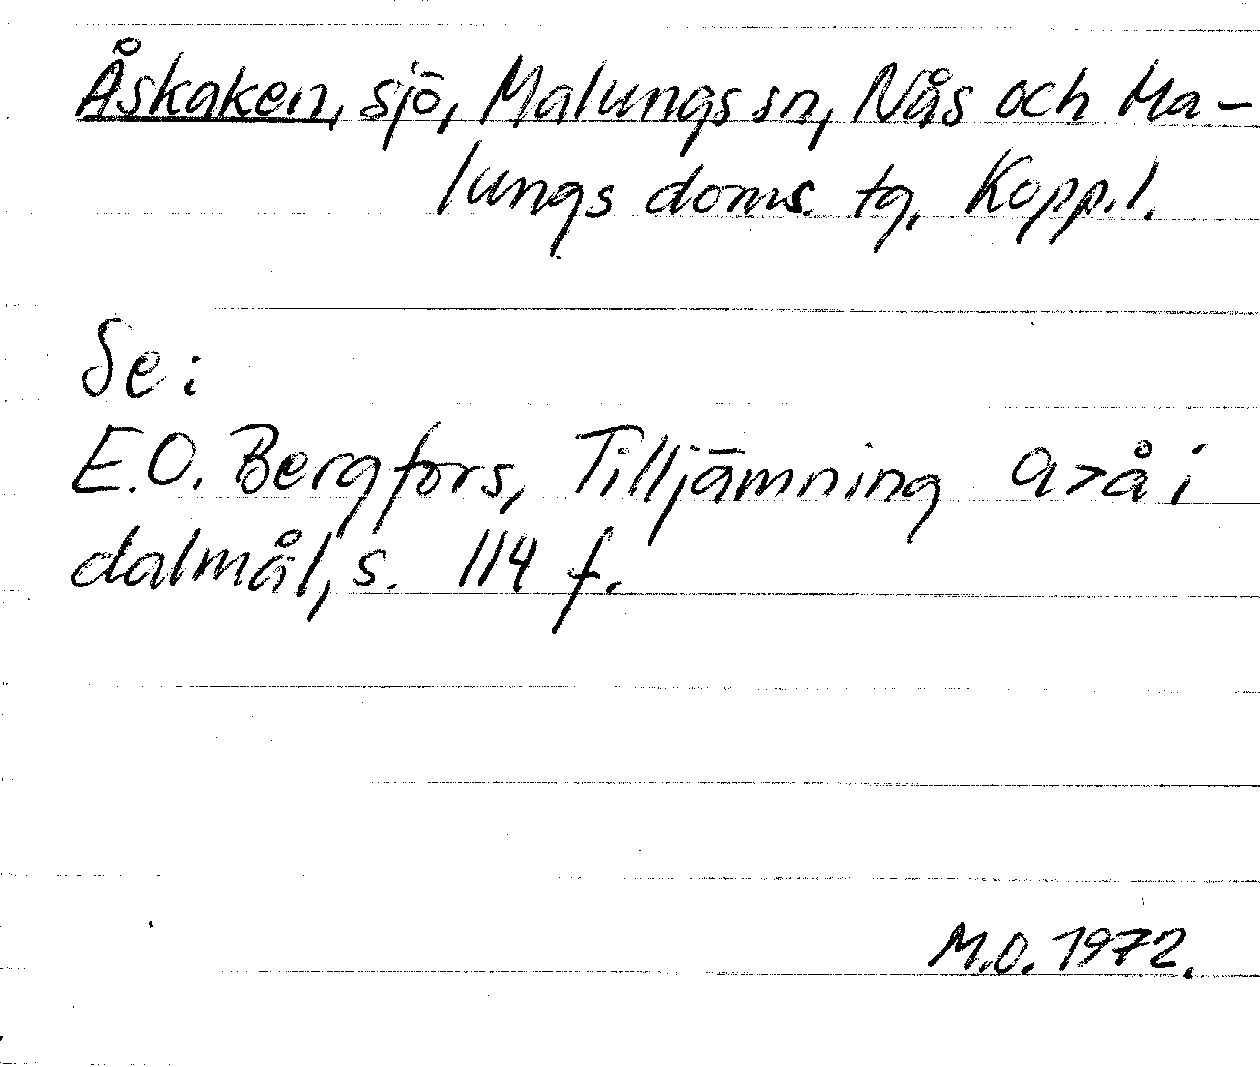 Åskaken, sjö, Malungs sn, Nås och Ma-
lungs doms. tg, Kopp.l.
Se:
E.O. Bergfors, Tilljämning a>å i
dalmål, s. 114 f.
M.O. 1972.